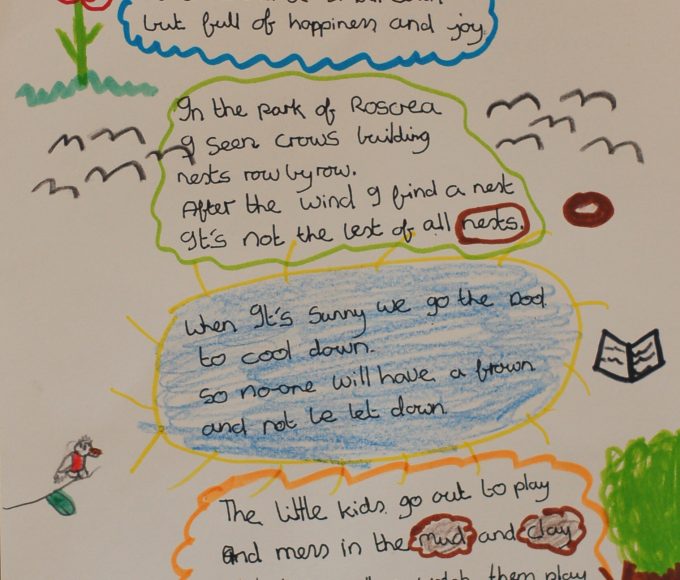 but full of happiness and joy
In the park of Roscrea
I seen crows building
nests row by row.
After the wind I find a nest
It's not the best of all nests.
When It's sunny we go the pool
to cool down.
so no-one will have a frown
and not be let down
The little kids go out to play
And mess in the mud and clay
them play